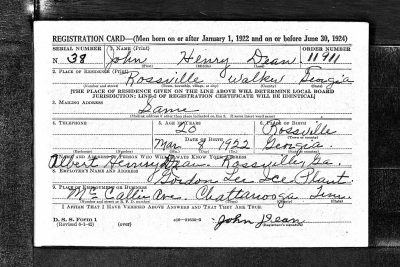 REGISTRATION CARD—(Men born on or after January 1, 1922 and on or before June 30, 1924)
SERIAL NUMBER 1. NAME (Print) ORDER NUMBER
N 38 John Henry Dean 11911
2. PLACE OF RESIDENCE (Print)
Rossville Walker Georgia
(Number and street) (Town, township, village, or city) (County) (State)
[THE PLACE OF RESIDENCE GIVEN ON THE LINE ABOVE WILL DETERMINE LOCAL BOARD
JURISDICTION; LINE 2 OF REGISTRATION CERTIFICATE WILL BE IDENTICAL]
3. MAILING ADDRESS
Same
(Mailing address if other than place indicated on line 2. If same insert word same)
4. TELEPHONE 5. AGE IN YEARS 6. PLACE OF BIRTH
20 Rossville
DATE OF BIRTH
Mar 8 1922 Georgia
7. NAME AND ADDRESS OF PERSON WHO WILL ALWAYS KNOW YOUR ADDRESS
Albert Dean Rossville, Ga.
8. EMPLOYER'S NAME AND ADDRESS
Gordon Lee Ice Plant
9. PLACE OF EMPLOYMENT OR BUSINESS
Mc Callie Ave. Chattanooga Tenn.
(Number and street or R. F. D. number) (Town) (County) (State)
I AFFIRM THAT I HAVE VERIFIED ABOVE ANSWERS AND THAT THEY ARE TRUE.
D. S. S. Form 1
(Revised 6-1-42) (over) John Dean
(Registrant's signature)